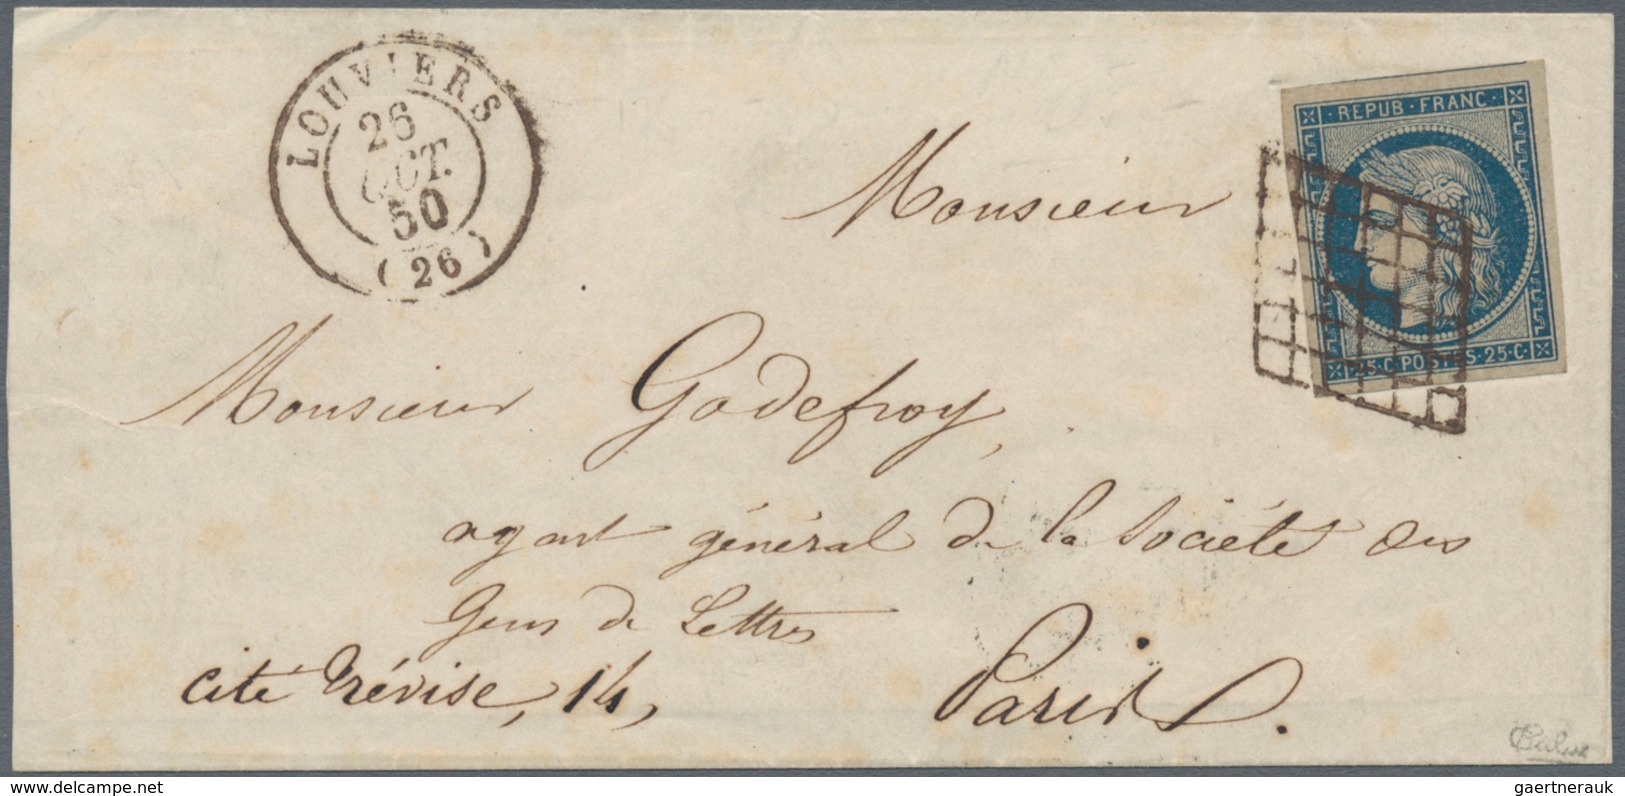 LOUVIERS
26
OCT.
50
(26)
REPUB·FRANC·
25·C·POSTES·25·C·
Monsieur
Monsieur Godefroy,
agent général de la Société des
Gens de Lettres
cité Trévise, 14,
Paris.
Calves
gaertnerauk